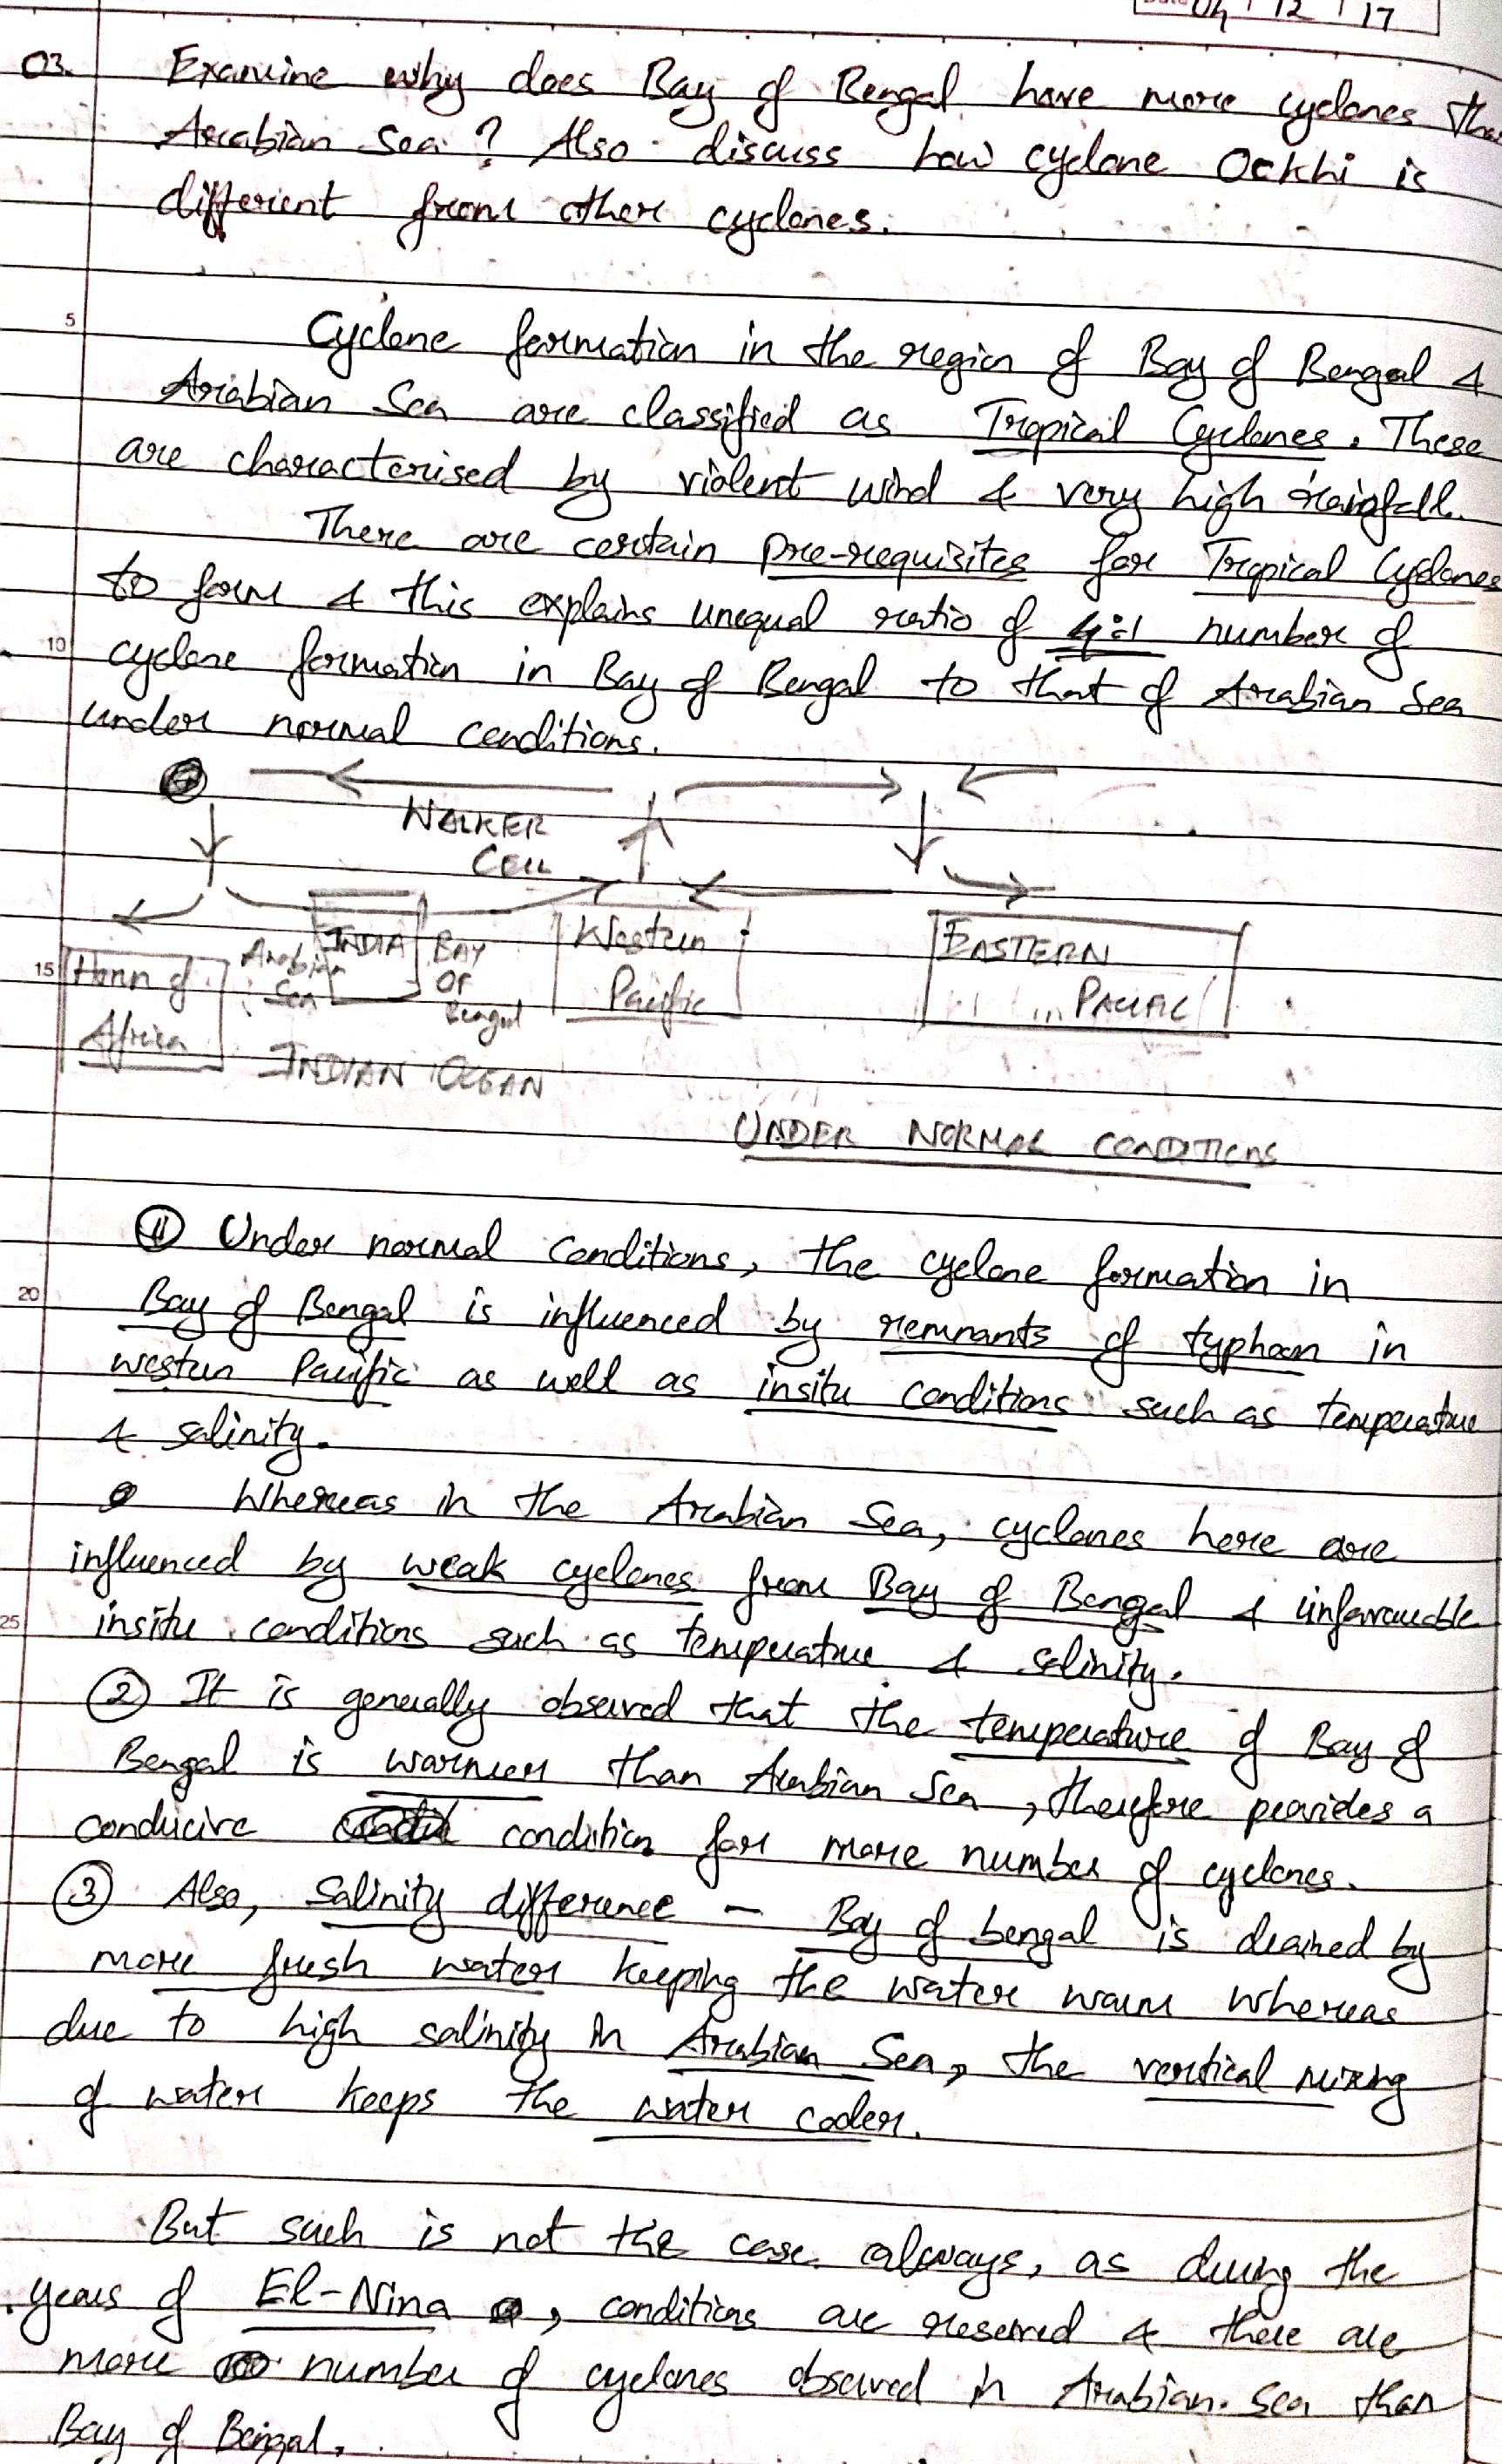 04 12 17
03. Examine why does Bay of Bengal have more cyclones than
Arabian Sea? Also discuss how cyclone Ockhi is
different from other cyclones.
5
Cyclone formation in the region of Bay of Bengal &
Arabian Sea are classified as Tropical Cyclones. These
are characterised by violent wind & very high rainfall.
There are certain pre-requisites for Tropical Cyclones
to form & this explains unequal ratio of 4:1 number of
10 cyclone formation in Bay of Bengal to that of Arabian Sea
under normal conditions.
WALKER
CELL
INDIA
Arabian Sea
BAY OF Bengal
Western Pacific
EASTERN PACIFIC
15
Horn of Africa
INDIAN OCEAN
UNDER NORMAL CONDITIONS
① Under normal conditions, the cyclone formation in
20 Bay of Bengal is influenced by remnants of typhoon in
western Pacific as well as insitu conditions such as temperature
& salinity.
Whereas in the Arabian Sea, cyclones here are
influenced by weak cyclones from Bay of Bengal & unfavourable
25 insitu conditions such as temperature & salinity.
② It is generally observed that the temperature of Bay of
Bengal is warmer than Arabian Sea, therefore provides a
conducive condition for more number of cyclones.
③ Also, Salinity difference - Bay of bengal is drained by
more fresh water keeping the water warm whereas
due to high salinity in Arabian Sea, the vertical mixing
of water keeps the water cooler.
But such is not the case always, as during the
years of El-Nina, conditions are reserved & there are
more number of cyclones observed in Arabian Sea than
Bay of Bengal.